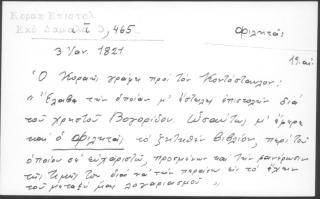 Κοραή Επιστολ
Εκδ Δαμαλά 3, 465
Φιλητάς
3 Ἰαν. 1821
19. αι.
Ὁ Κοραῆς γράφει πρὸς τὸν Κοντόσταυλον:
"Ἔλαβα τὴν ὁποίαν μ' ἔστειλες ἐπιστολὴν διὰ
τοῦ χρηστοῦ Βογορίδου. Ὡσαύτως μ' ἔφερε
καὶ ὁ Φιλητᾶς τὸ ζητηθὲν βιβλίον, περὶ τοῦ
ὁποίου σὲ εὐχαριστῶ, προσμένων καὶ τὴν φανέρωσιν
τῆς τιμῆς του διὰ νὰ τὴν περάσω εἰς τὸ ἔχειν
τοῦ μεταξύ μας λογαριασμοῦ."